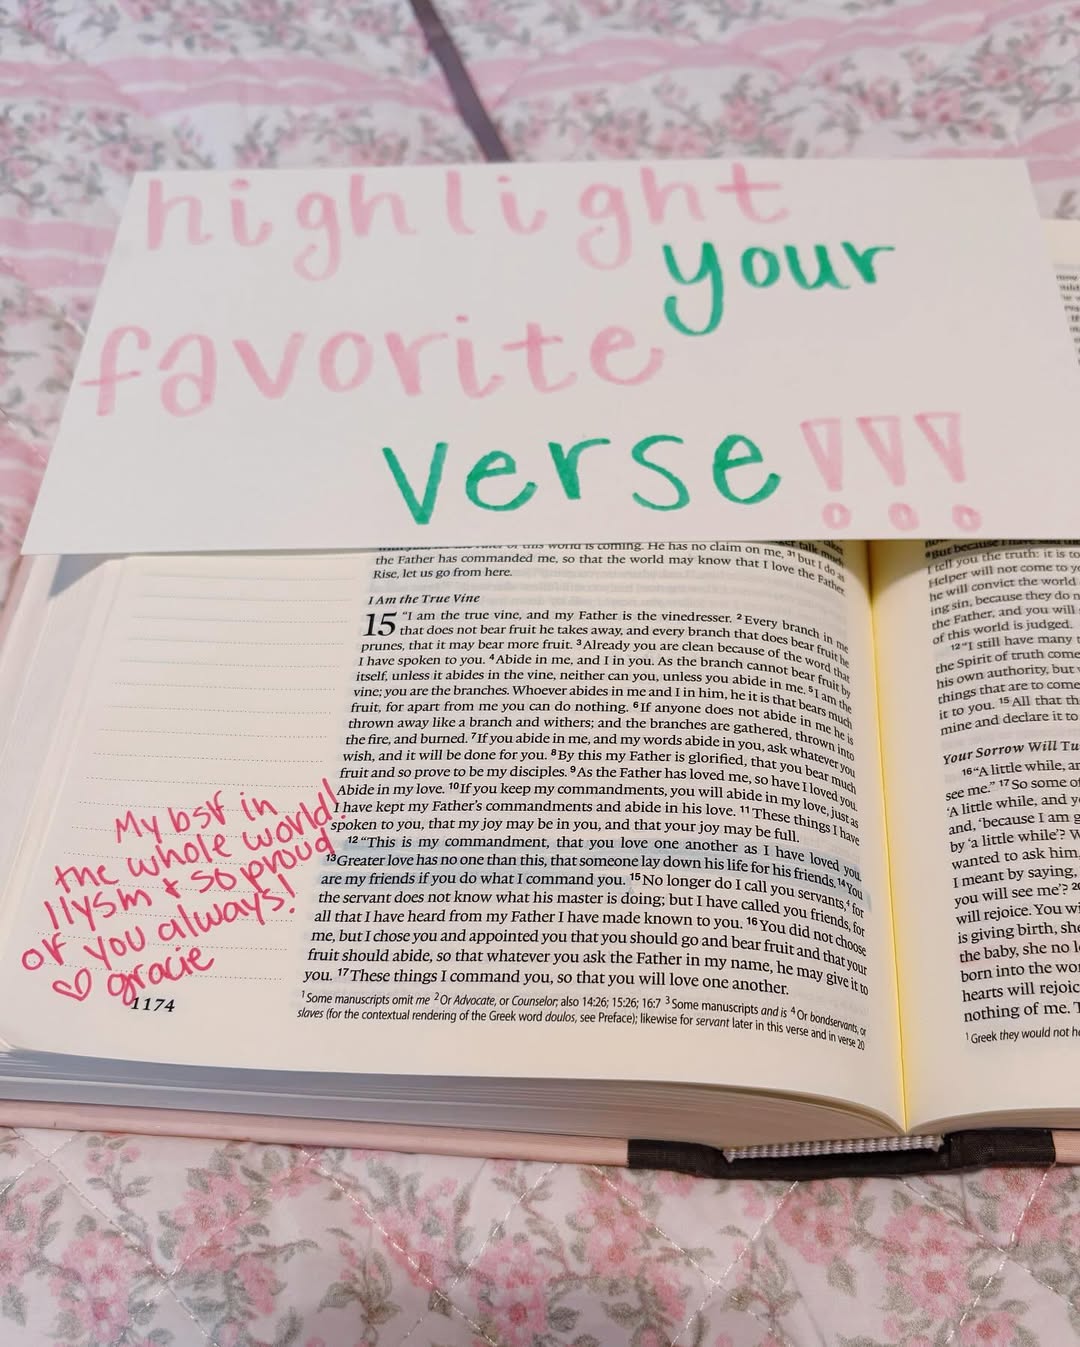 highlight
your
favorite
verse!!!
of this world is coming. He has no claim on me, 31 but I do as
the Father has commanded me, so that the world may know that I love the Father.
Rise, let us go from here.
I Am the True Vine
15 “I am the true vine, and my Father is the vinedresser. 2 Every branch in me
that does not bear fruit he takes away, and every branch that does bear fruit he
prunes, that it may bear more fruit. 3 Already you are clean because of the word that
I have spoken to you. 4 Abide in me, and I in you. As the branch cannot bear fruit by
itself, unless it abides in the vine, neither can you, unless you abide in me. 5 I am the
vine; you are the branches. Whoever abides in me and I in him, he it is that bears much
fruit, for apart from me you can do nothing. 6 If anyone does not abide in me he is
thrown away like a branch and withers; and the branches are gathered, thrown into
the fire, and burned. 7 If you abide in me, and my words abide in you, ask whatever you
wish, and it will be done for you. 8 By this my Father is glorified, that you bear much
fruit and so prove to be my disciples. 9 As the Father has loved me, so have I loved you.
Abide in my love. 10 If you keep my commandments, you will abide in my love, just as
I have kept my Father’s commandments and abide in his love. 11 These things I have
spoken to you, that my joy may be in you, and that your joy may be full.
12 “This is my commandment, that you love one another as I have loved you.
13 Greater love has no one than this, that someone lay down his life for his friends. 14 You
are my friends if you do what I command you. 15 No longer do I call you servants,4 for
the servant does not know what his master is doing; but I have called you friends, for
all that I have heard from my Father I have made known to you. 16 You did not choose
me, but I chose you and appointed you that you should go and bear fruit and that your
fruit should abide, so that whatever you ask the Father in my name, he may give it to
you. 17 These things I command you, so that you will love one another.
1 Some manuscripts omit me 2 Or Advocate, or Counselor; also 14:26; 15:26; 16:7 3 Some manuscripts and is 4 Or bondservants, or
slaves (for the contextual rendering of the Greek word doulos, see Preface); likewise for servant later in this verse and in verse 20
My bsf in
the whole world!
Ilysm + so proud
of you always!
♡ gracie
1174
But because I have said
I tell you the truth: it is to
Helper will not come to
he will convict the world
ing sin, because they do
the Father, and you will
of this world is judged.
12 “I still have many
the Spirit of truth come
his own authority, but
things that are to come
it to you. 15 All that th
mine and declare it to
Your Sorrow Will Tu
16 “A little while, an
see me.” 17 So some of
‘A little while, and
and, ‘because I am g
by ‘a little while’?
wanted to ask him,
I meant by saying,
you will see me’? 20
will rejoice. You wi
is giving birth, she
the baby, she no
born into the wor
hearts will rejoic
nothing of me.
1 Greek they would not